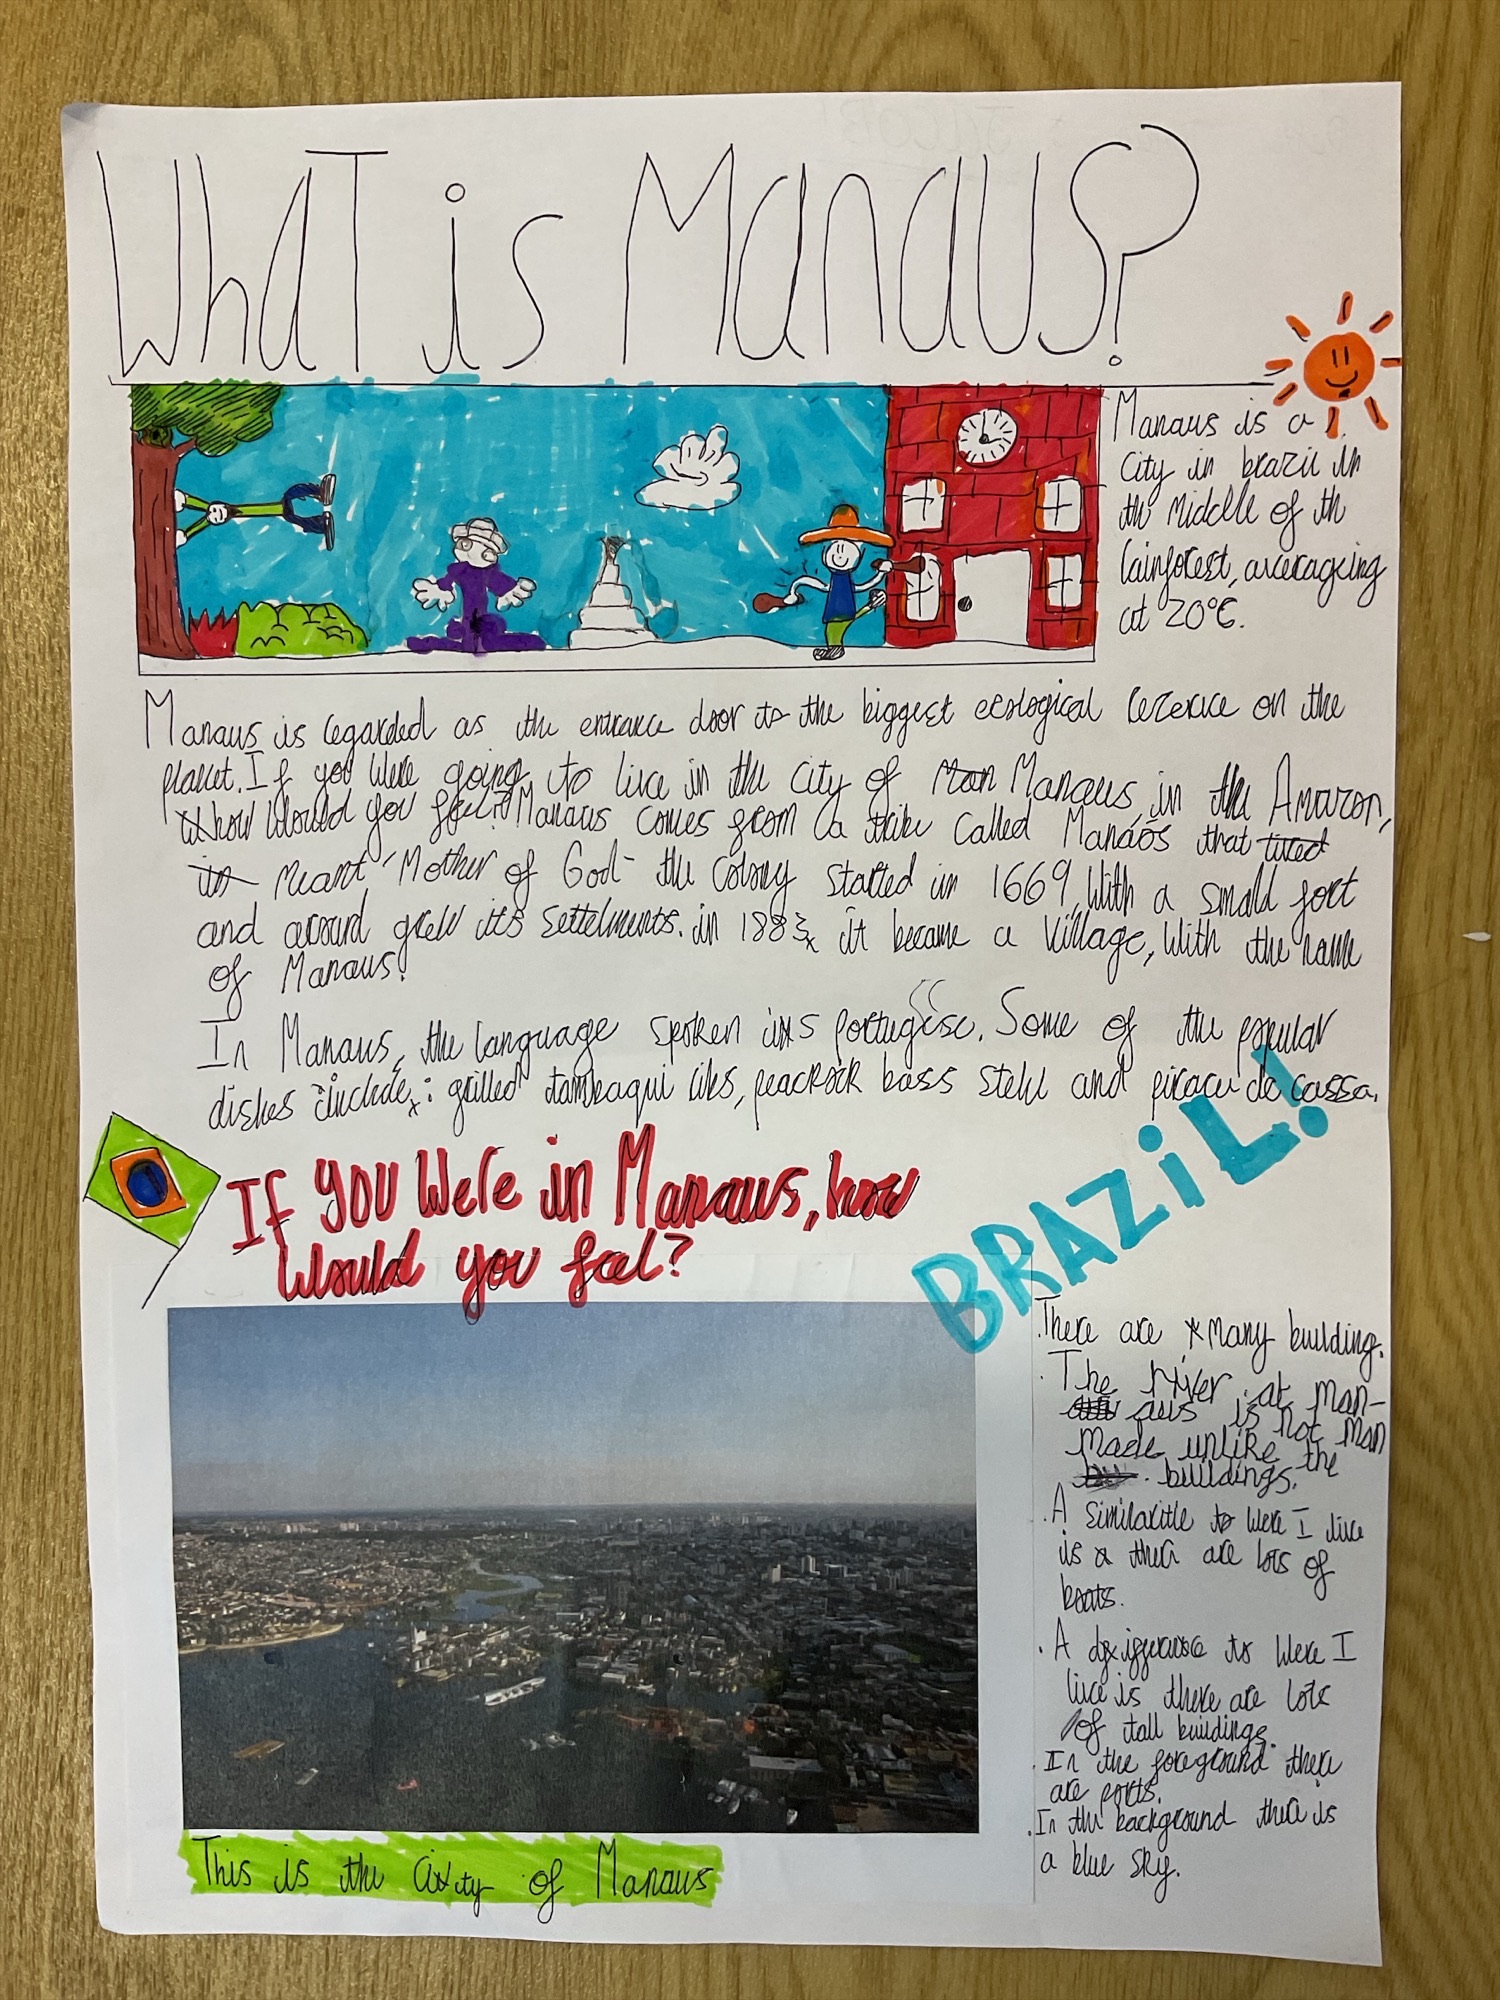 What is Manaus?
Manaus is a
city in brazil in
the middle of the
rainforest, averageing
at 20°C.
Manaus is regarded as the entrance door to the biggest ecological rezerve on the
planet. If you were going to live in the city of Man Manaus, in the Amazon,
how would you feel? Manaus comes from a tribe called Manáos that
meant 'Mother of God' the colony started in 1669, with a small fort
and around grew its settelments. in 1883 it became a village, with the name
of Manaus.
In Manaus, the language spoken is portugese. Some of the popular
dishes include: grilled tambaqui ribs, peackock bass stew and piracu de cassa.
BRAZiL!
If you were in Manaus, how
would you feel?
There are many building.
The river at Man-
aus is not man
made unlike the
buildings.
A similaritie to were I live
is ther are lots of
boats.
A difference to were I
live is there are lots
of tall buildings.
In the foreground there
are ports.
In the background ther is
a blue sky.
This is the city of Manaus